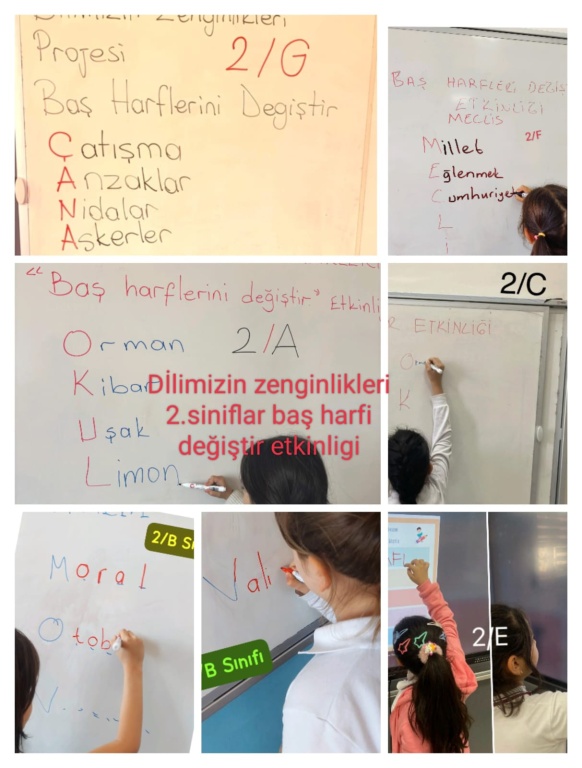 Dilimizin Zenginlikleri
Projesi 2/G
Baş Harflerini Değiştir
Çatışma
Anzaklar
Nidalar
Askerler
BAŞ HARFLERİ DEĞİŞ
ETKİNLİĞİ
MECLİS
2/F
Millet
Eğlenmek
Cumhuriyet
L
İ
"Baş harflerini değiştir" Etkinli
2/A
Orman
Kibar
Uşak
Limon
Dİlimizin zenginlikleri
2.siniflar baş harfi
değiştir etkinligi
2/C
R ETKİNLİĞİ
O
K
2/B Sı
Moral
Otob
V
Vali
B Sınıfı
2/E